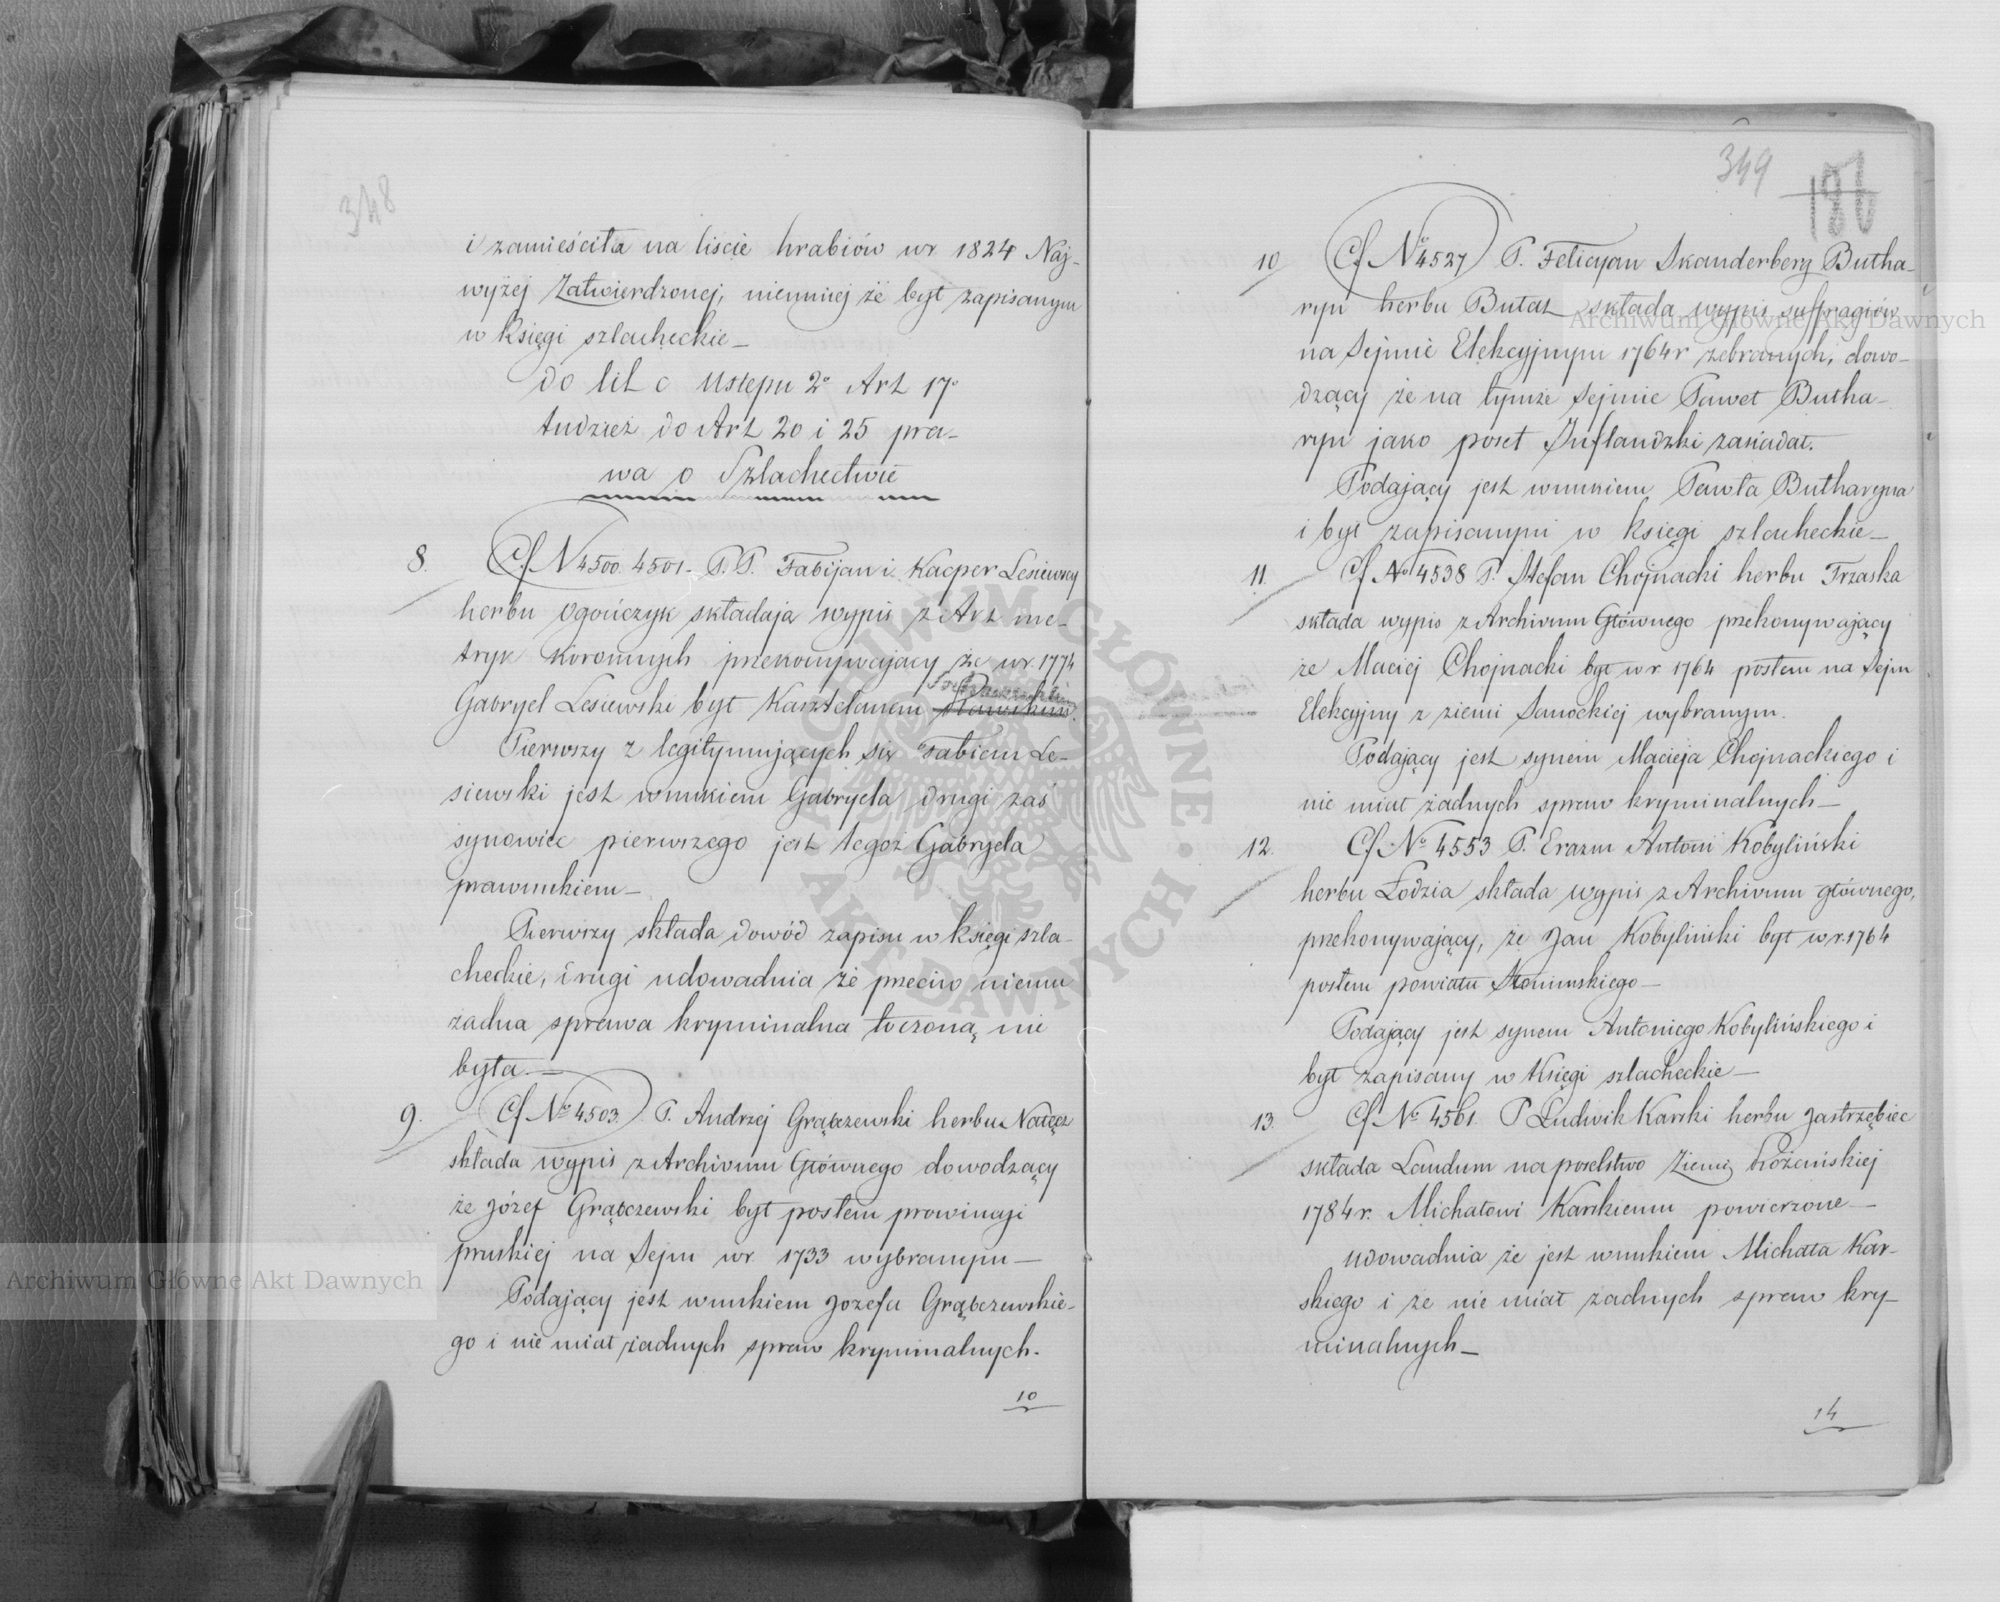 348
i zamieściła na liście hrabiów w r. 1824 Naj-
wyżej Zatwierdzonej, niemniej że był zapisanym
w księgi szlacheckie_
do lit c Ustępu 2° Art 17°
tudzież do Art 20 i 25 pra-
wa o Szlachectwie
8. Cf N 4500. 4501. P. P. Fabijan i Kacper Lesiewscy
herbu Ogończyk składają wypis z Art me-
tryk koronnych przekonywający że w r. 1774
Gabryel Lesiewski był Kasztelanem
Pierwszy z legitymujących się Fabian Le-
siewski jest wnukiem Gabryela drugi zaś
synowiec pierwszego jest tegoż Gabryela
prawnukiem_
Pierwszy składa dowód zapisu w księgi szla-
checkie, drugi udowadnia że przeciw niemu
żadna sprawa kryminalna toczoną nie
była._
9. Cf No 4503. P. Andrzej Grąbczewski herbu Nałęcz
składa wypis z Archivum Głównego dowodzący
że Józef Grąbczewski był posłem prowincyi
pruskiej na Sejm w r. 1733 wybranym_
Podający jest wnukiem Józefa Grąbczewskie-
go i nie miał żadnych spraw kryminalnych.
10
349
10 Cf No 4527 P. Felicyan Skanderberg Butha-
ryn herbu Butat składa wypis suffragiów
na Sejmie Elekcyjnym 1764 r zebranych, dowo-
dzący że na tymże Sejmie Paweł Butha-
ryn jako poseł Inflandzki zasiadał.
Podający jest wnukiem Pawła Butharyna
i był zapisanym w księgi szlacheckie_
11. Cf No 4538 P. Stefan Chojnacki herbu Trzaska
składa wypis z Archivum Głównego przekonywający
że Maciej Chojnacki był w r 1764 posłem na Sejm
Elekcyjny z ziemi Sanockiej wybranym.
Podający jest synem Macieja Chojnackiego i
nie miał żadnych spraw kryminalnych_
12. Cf. No 4553 P. Erazm Antoni Kobyliński
herbu Łodzia składa wypis z Archivum głównego,
przekonywający, że Jan Kobyliński był w r. 1764
posłem powiatu Słonimskiego_
Podający jest synem Antoniego Kobylińskiego i
był zapisany w Księgi szlacheckie_
13. Cf No 4561. P Ludwik Karski herbu Jastrzębiec
składa Laudum na poselstwo Ziemi Różańskiej
1784 r. Michałowi Karskiemu powierzone_
udowadnia że jest wnukiem Michała Kar-
skiego i że nie miał żadnych spraw kry-
minalnych_
14
Archiwum Główne Akt Dawnych
Archiwum Główne Akt Dawnych
ARCHIWUM GŁÓWNE AKT DAWNYCH